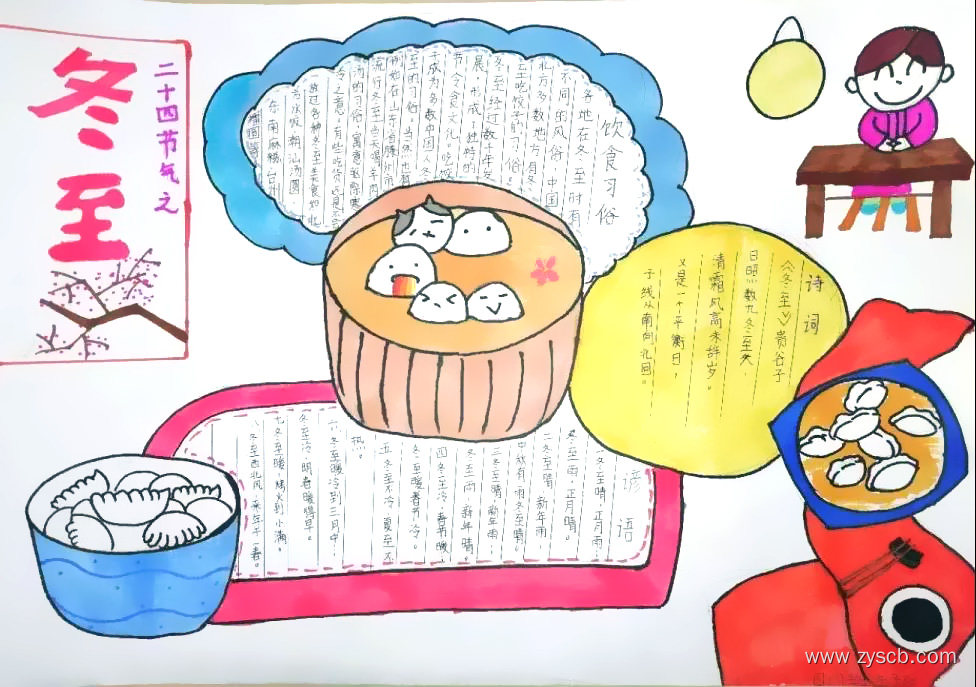 冬至
二十四节气之
饮食习俗
各地在冬至时有
不同的风俗，中国
北方多数地方有冬
至吃饺子的习俗。
冬至经过数千年发
展，形成了独特的
节令食文化。吃饺
子成为多数中国人冬
至的习俗。当然也有
例外，如在山东省滕州市
流行冬至当天喝羊肉
汤的习俗，寓意驱除寒
冷之意。有些吃俗还是不
放过各种冬至美食如北
方水饺、潮汕汤圆、
东南麻糍、台州
擂圆等。
诗词
《冬至》贵谷子
日照数九冬至天，
清霜风高未辞岁。
又是一个平衡日，
子线从南向北回。
谚语
冬至晴，正月雨，
冬至雨，正月晴。
二冬至晴，新年雨，
中秋有雨冬至晴。
三冬至晴，新年雨，
冬至雨，新年晴。
四冬至冷，春节暖，
冬至暖，春节冷。
五冬至不冷，夏至不
热。
六冬至暖，冷到三月中；
冬至冷，明春暖得早。
七冬至暖，烤火到小满。
冬至西北风，来年干一春。
www.zyscb.com